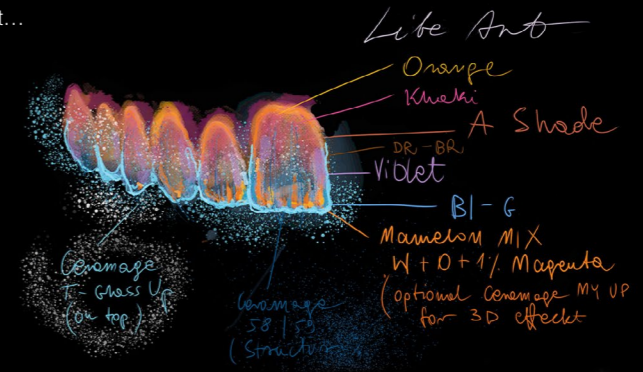 t...
Life Art
Orange
Khaki
A Shade
DR-BR
Violet
Bl-G
Mamelon MIX
W + O + 1% Magenta
(optional Ceramage MY UP
for 3D effeckt
Ceramage
T-Glass Up
(on top)
Ceramage
58 | 59
(Structur